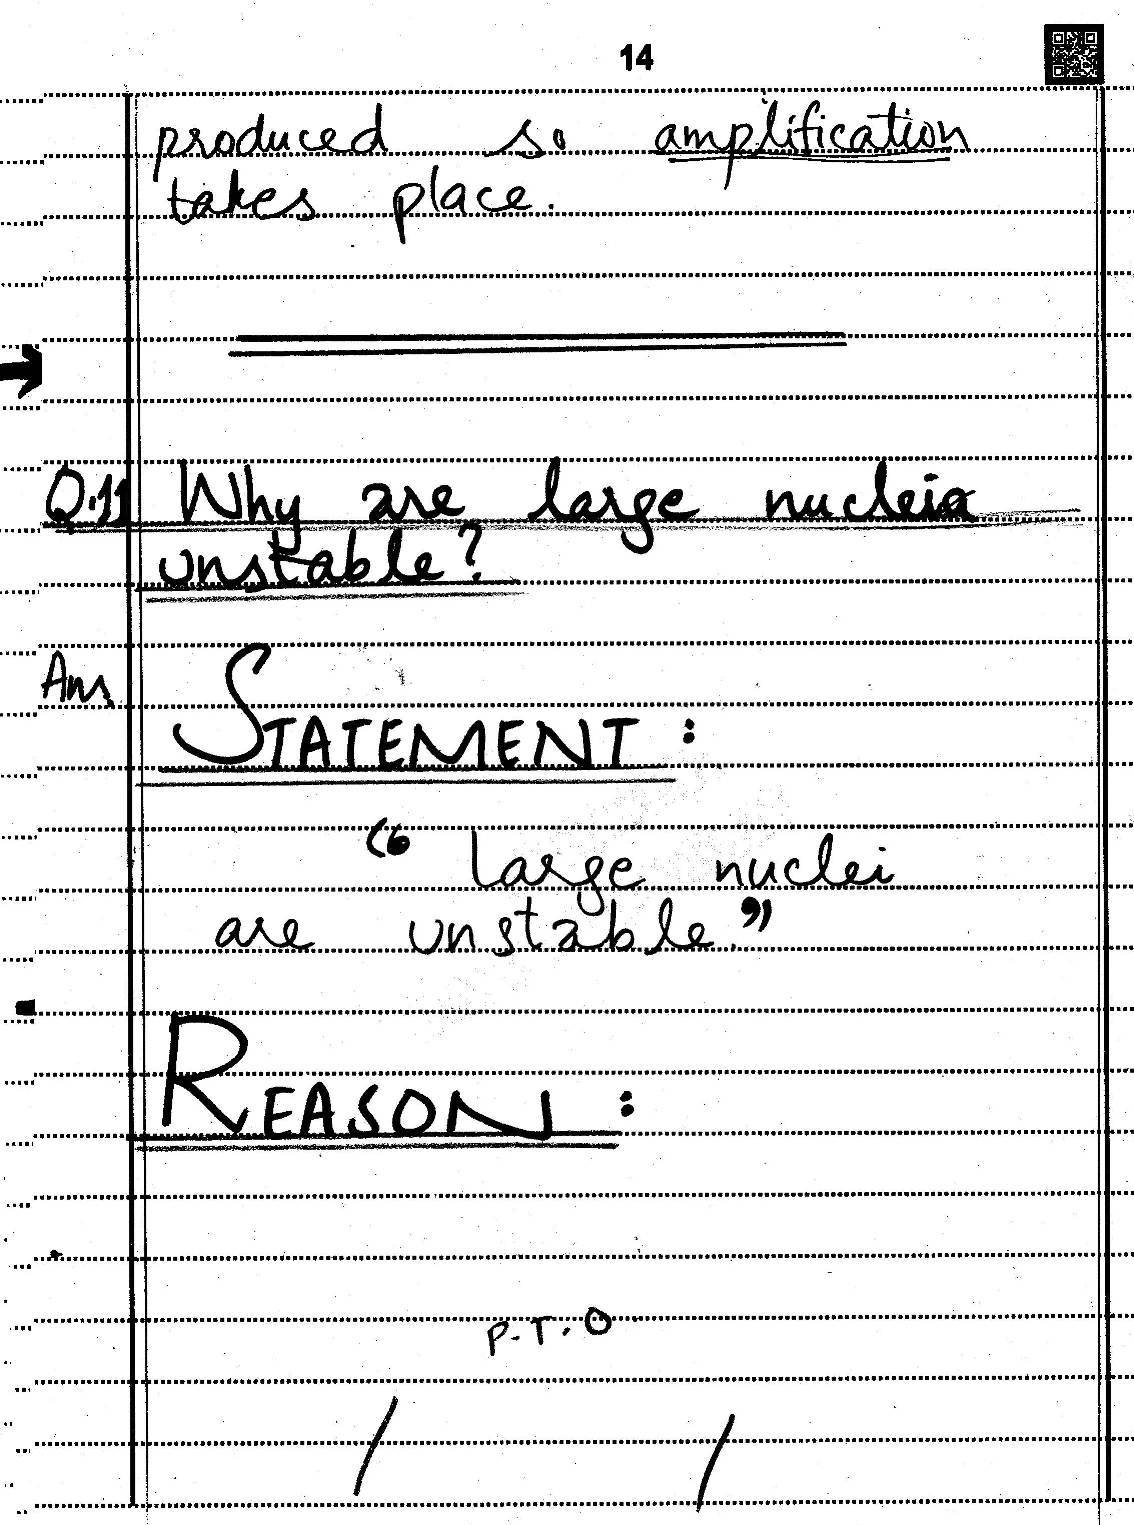 14
produced so amplification
takes place.
Q.11 Why are large nuclei
unstable?
Ans STATEMENT :
“ Large nuclei
are unstable.”
REASON :
P.T.O